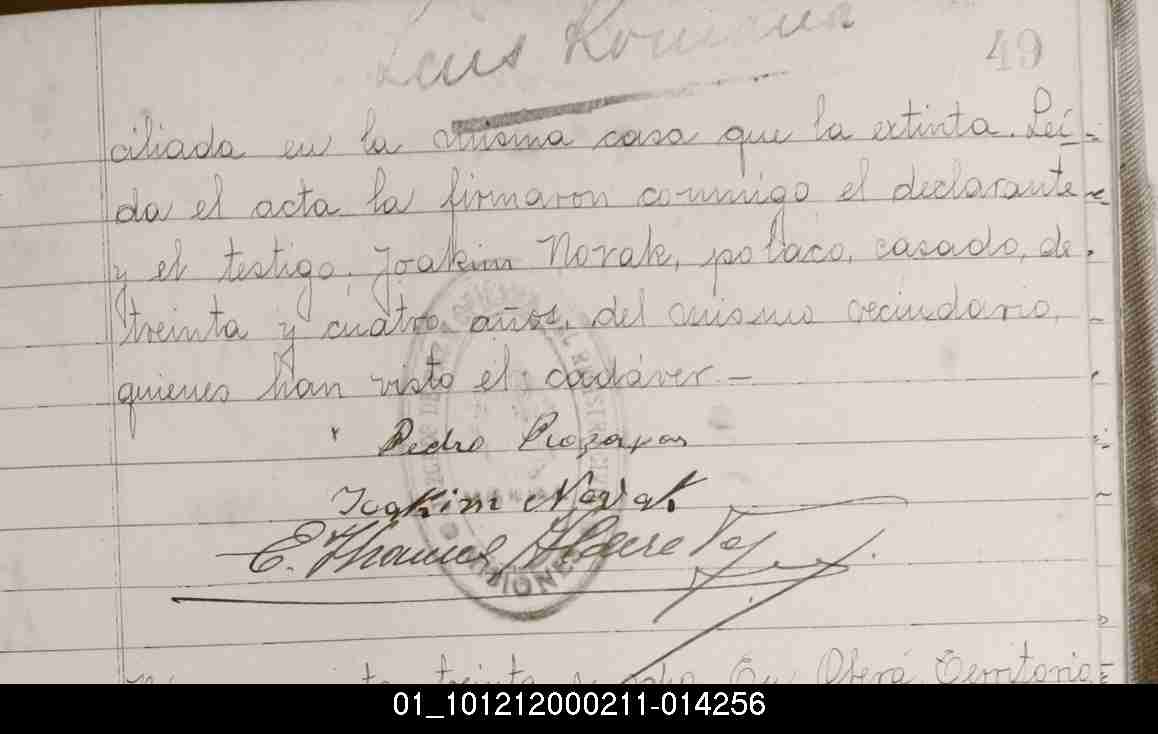 Luis Romana
49
ciliada en la misma casa que la extinta. Leí-
da el acta la firmaron conmigo el declarante
y el testigo, Joakim Novak, polaco, casado, de
treinta y cuatro años, del mismo vecindario,
quienes han visto el cadáver.—
Pedro
Joakim Novak
E. Thomas
treinta y ocho En Oberá, Territorio
01_101212000211-014256